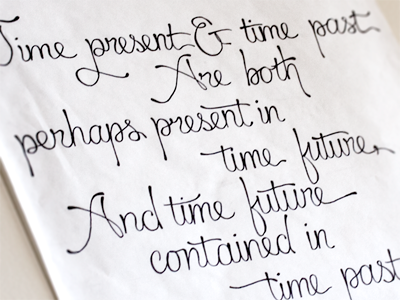 Time present & time past
Are both
perhaps present in
time future
And time future
contained in
time past